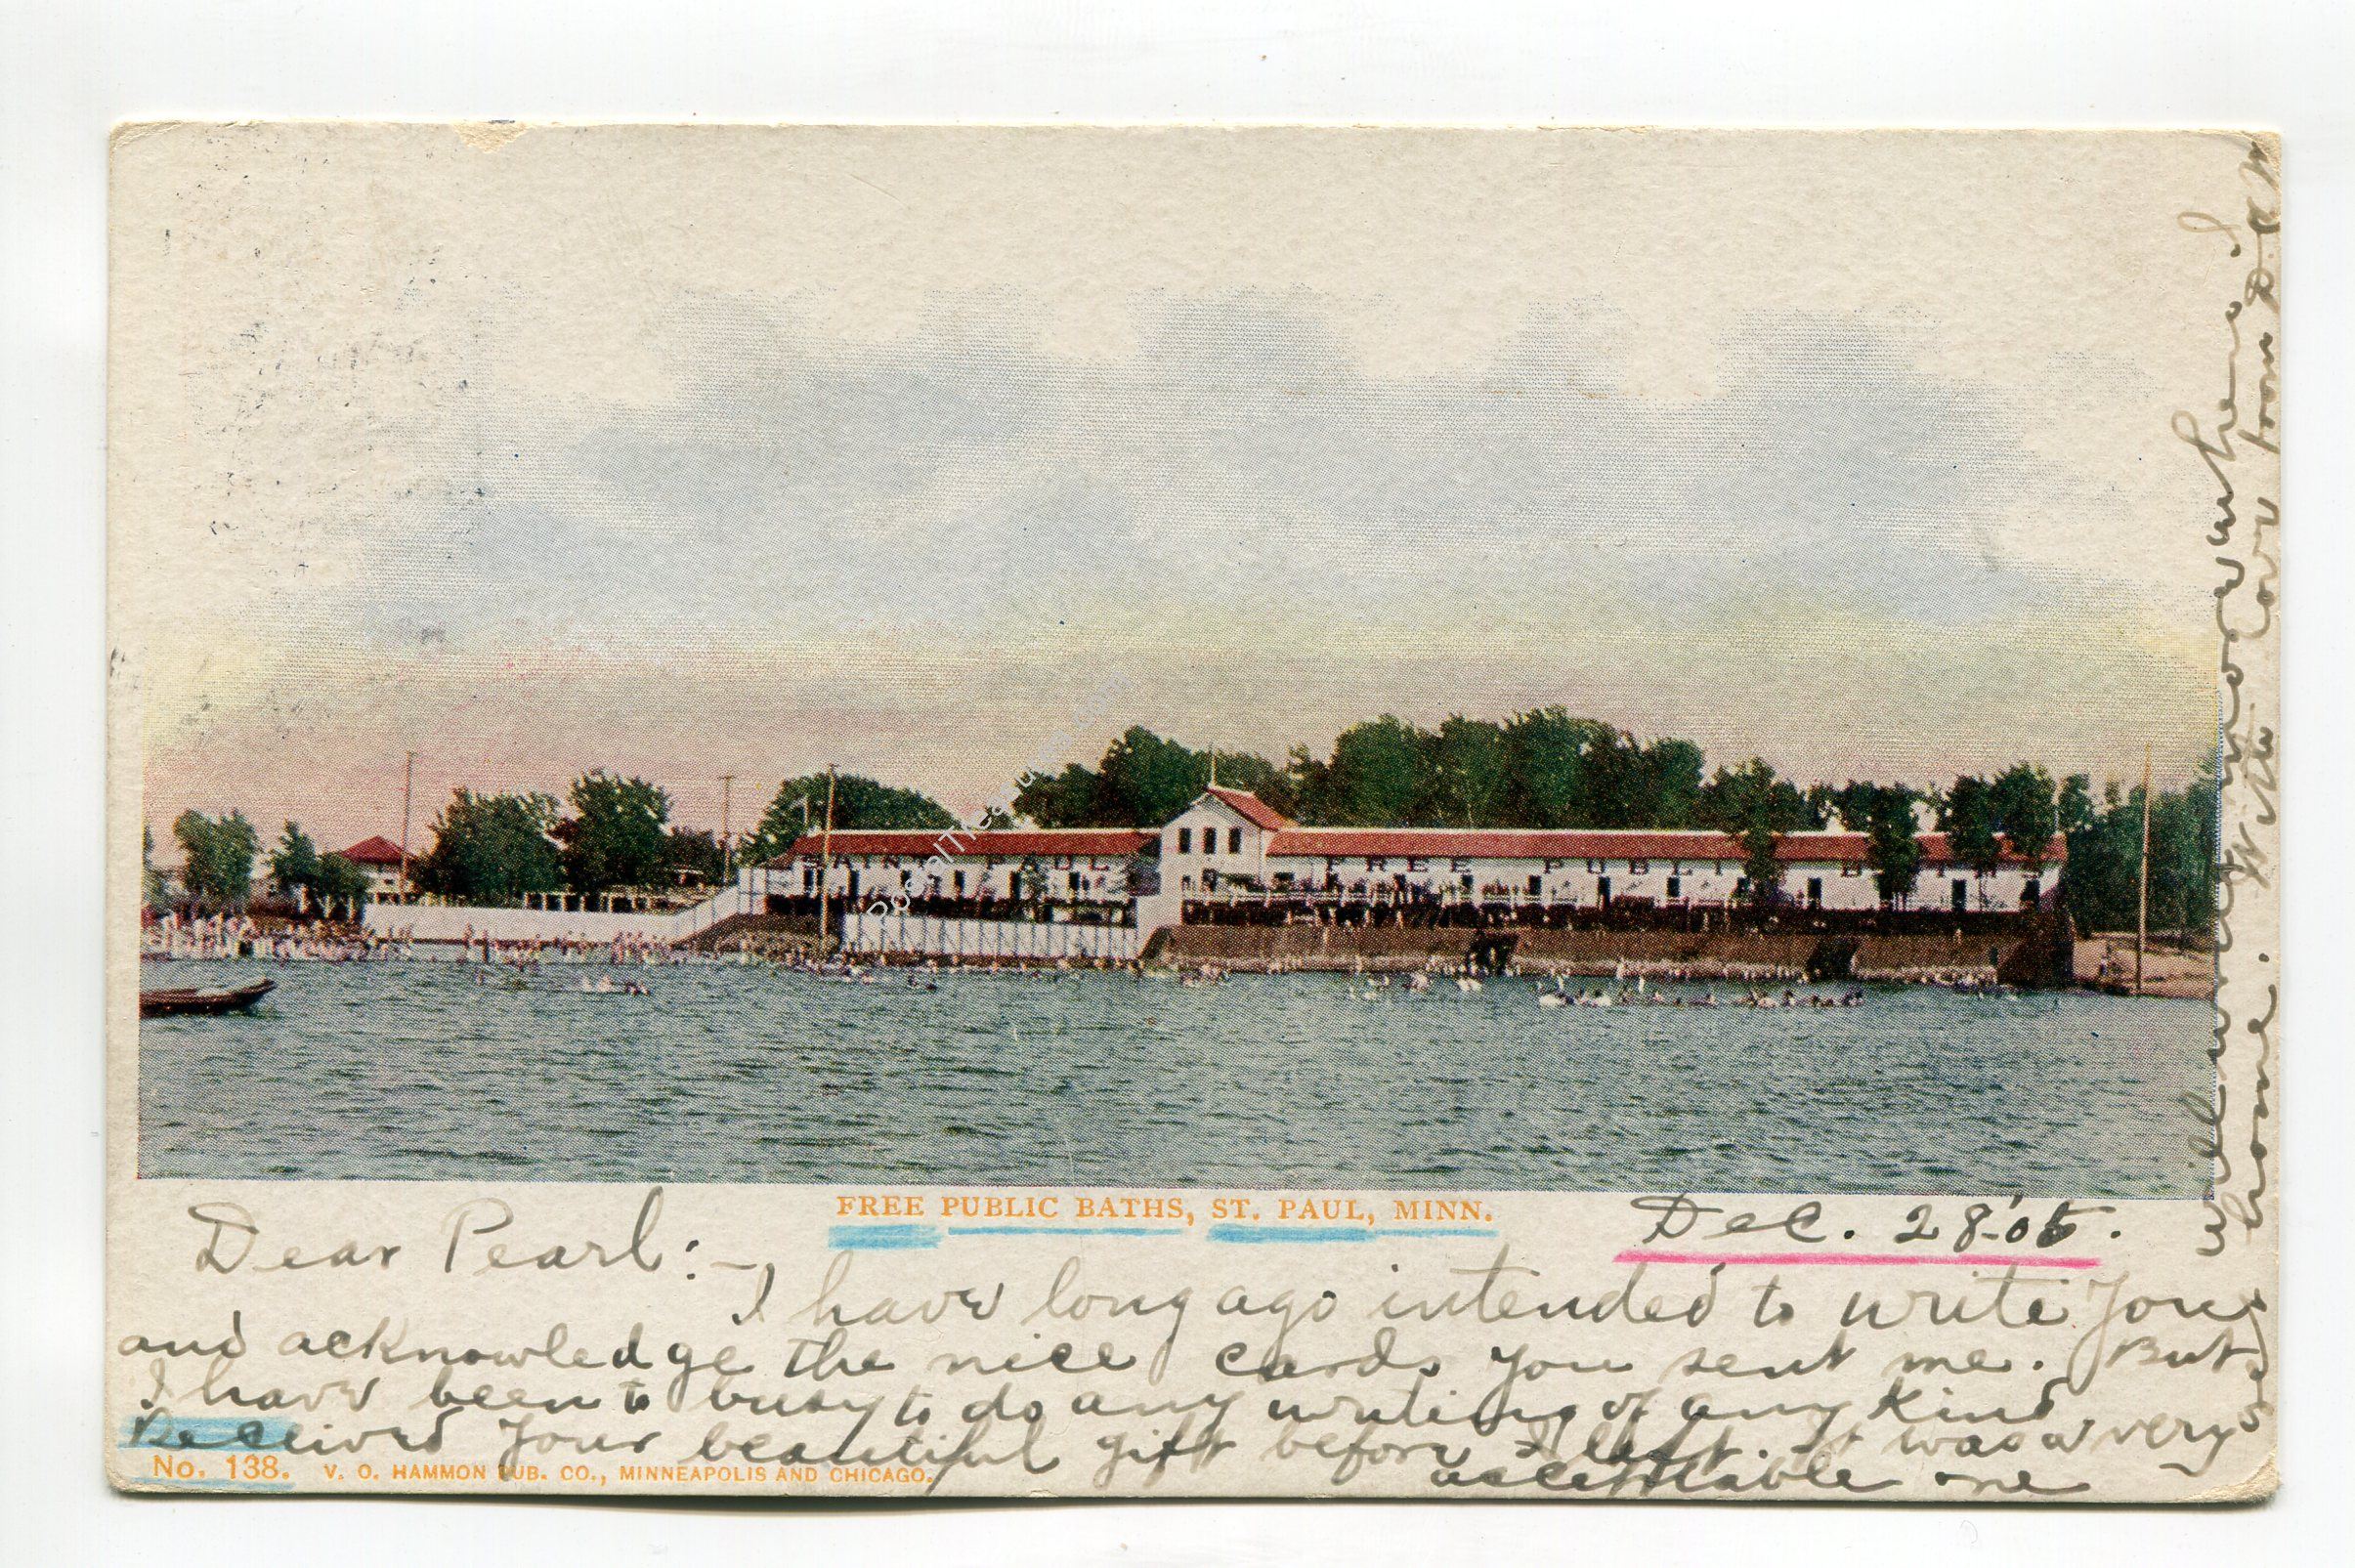 SAINT PAUL FREE PUBLIC BATHS
PostalTreasures.com
FREE PUBLIC BATHS, ST. PAUL, MINN.
Dec. 28-'05.
Dear Pearl:-
I have long ago intended to write you
and acknowledge the nice cards you sent me. But
I have been to busy to do any writing of any kind
Received your beautiful gift before I left. It was a very
acceptable one
No. 138. V. O. HAMMON PUB. CO., MINNEAPOLIS AND CHICAGO.
will write more when I
home. With love from